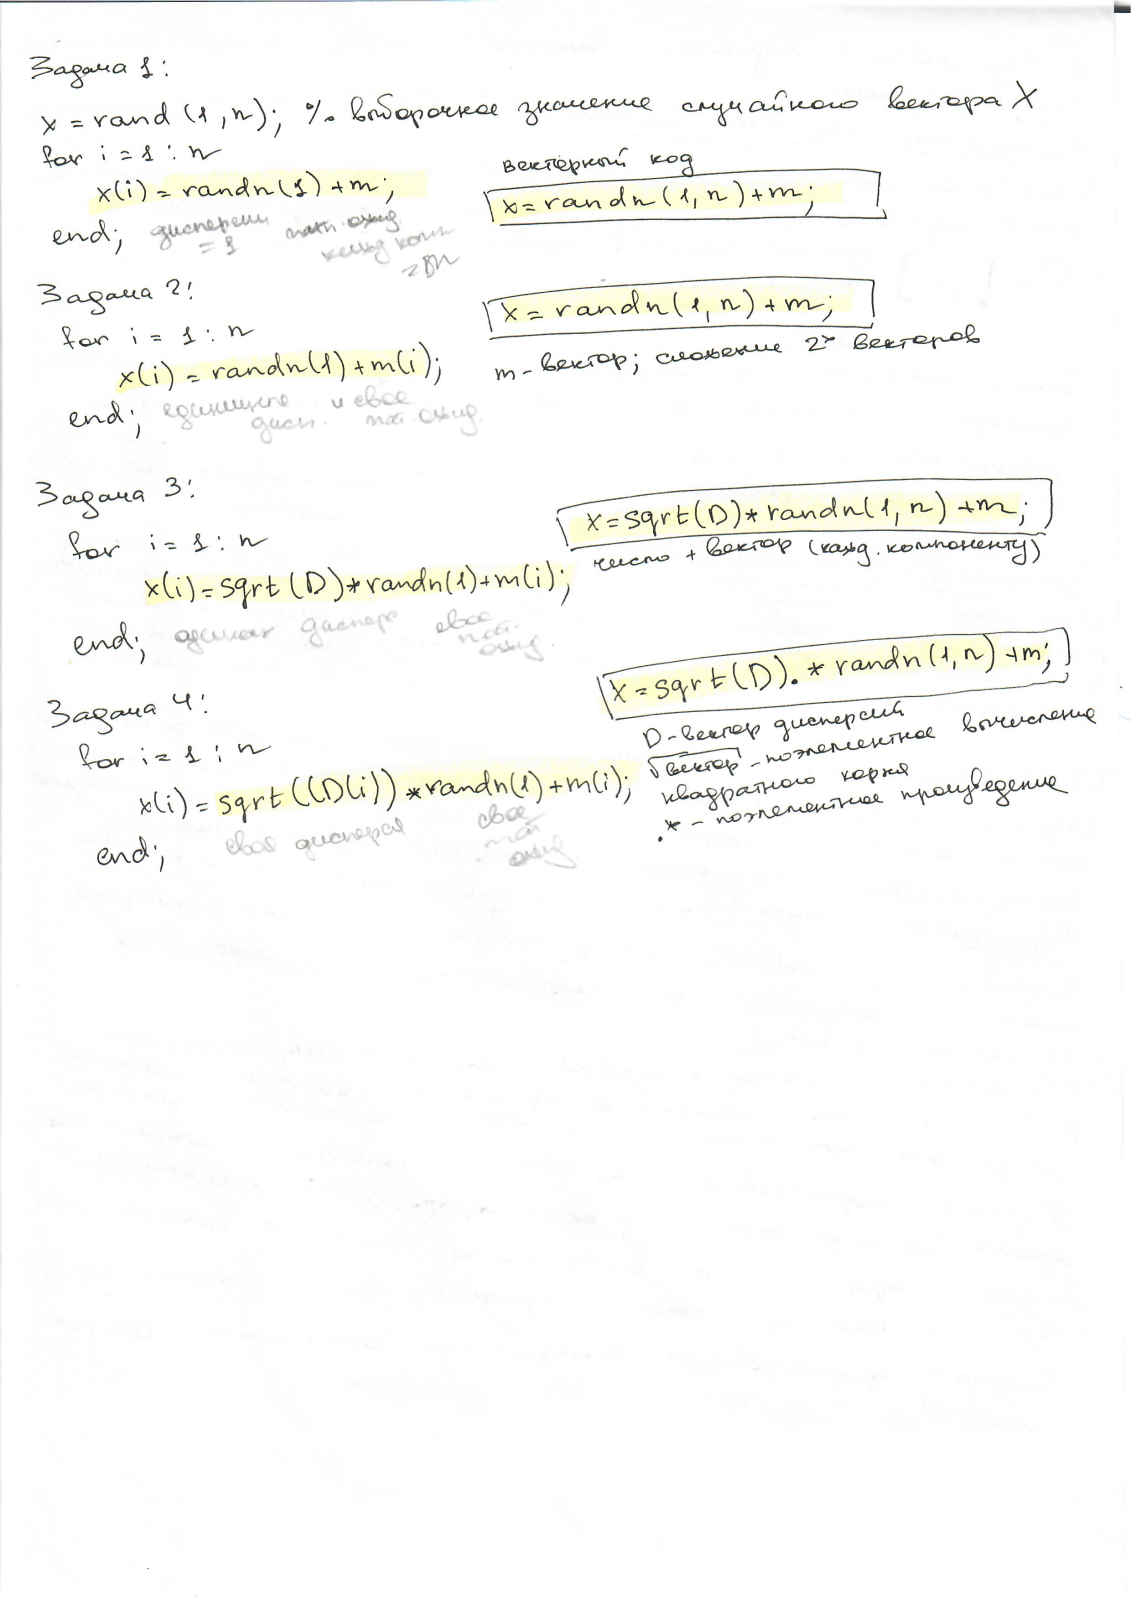 Задача 1:
x = rand (1, n); % выборочное значение случайного вектора X
for i = 1 : n
x(i) = randn(1) + m;
end;
дисперсии мат. ожид.
= 1 кажд комп
= m
векторный код
x = randn(1, n) + m;
Задача 2:
for i = 1 : n
x(i) = randn(1) + m(i);
end;
единичные и свое
дисп. мат. ожид.
x = randn(1, n) + m;
m - вектор; сложение 2х векторов
Задача 3:
for i = 1 : n
x(i) = sqrt (D) * randn(1) + m(i);
end;
одинак дисперс свое
мат.
ожид.
x = sqrt(D) * randn(1, n) + m;
число + вектор (кажд. компоненту)
Задача 4:
for i = 1 : n
x(i) = sqrt((D(i)) * randn(1) + m(i);
end;
своя дисперсия свое
мат
ожид
x = sqrt(D) .* randn(1, n) + m;
D - вектор дисперсий
√вектор - поэлементное вычисление
квадратного корня
.* - поэлементное произведение